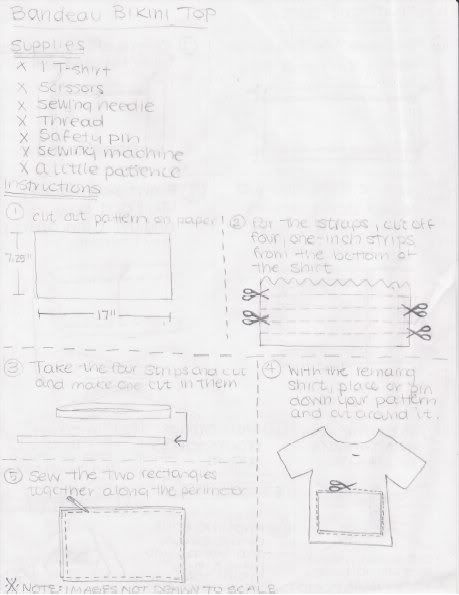 Bandeau Bikini Top
Supplies
x 1 T-shirt
x Scissors
x Sewing needle
x Thread
x Safety pin
x Sewing machine
x a little patience
Instructions
① cut out pattern on paper!
7.25"
17"
② For the straps, cut off
four, one-inch strips
from the bottom of
the shirt
③ Take the four strips and cut
and make one cut in them
④ With the remaing
shirt, place or pin
down your pattern
and cut around it.
⑤ Sew the two rectangles
together along the perimeter
X NOTE: IMAGES NOT DRAWN TO SCALE